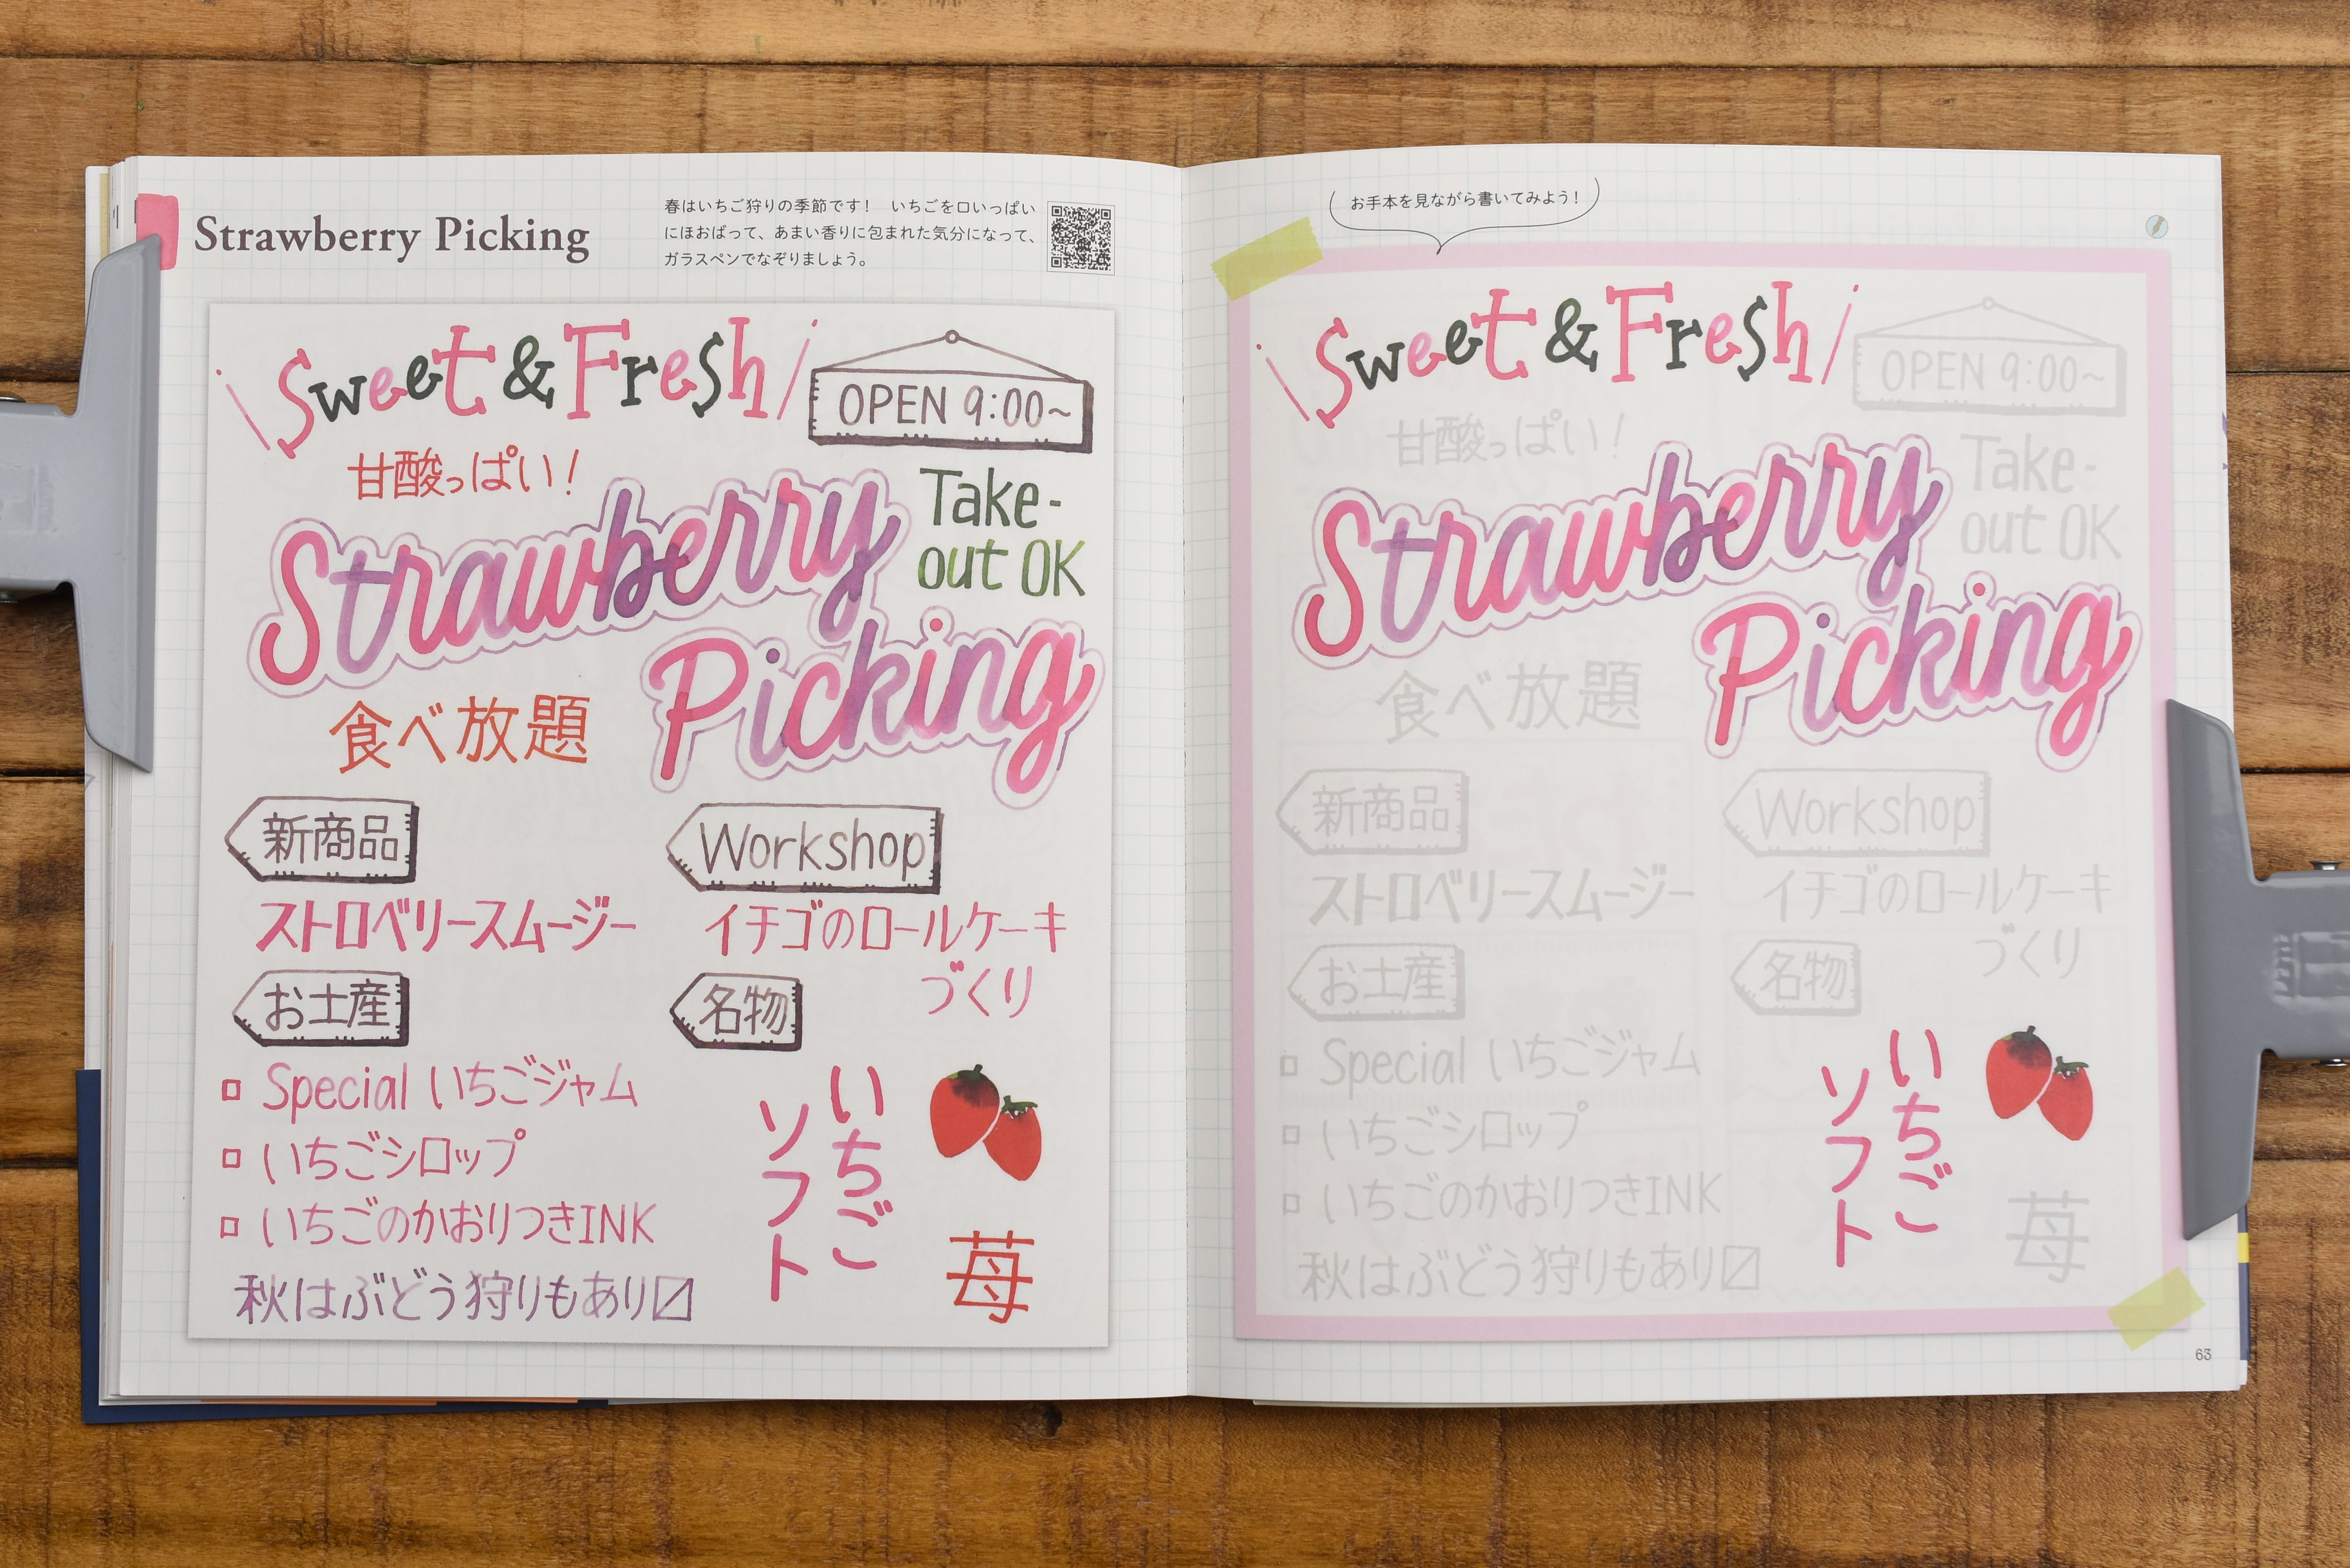 Strawberry Picking
春はいちご狩りの季節です！　いちごを口いっぱい
にほおばって、あまい香りに包まれた気分になって、
ガラスペンでなぞりましょう。
\ Sweet & Fresh /
OPEN 9:00~
甘酸っぱい！
Take-
out OK
Strawberry
Picking
食べ放題
新商品
ストロベリースムージー
お土産
□ Special いちごジャム
□ いちごシロップ
□ いちごのかおりつきINK
秋はぶどう狩りもあり〼
Workshop
イチゴのロールケーキ
づくり
名物
いちご
ソフト
苺
お手本を見ながら書いてみよう！
\ Sweet & Fresh /
OPEN 9:00~
甘酸っぱい！
Take-
out OK
Strawberry
Picking
食べ放題
新商品
ストロベリースムージー
お土産
□ Special いちごジャム
□ いちごシロップ
□ いちごのかおりつきINK
秋はぶどう狩りもあり〼
Workshop
イチゴのロールケーキ
づくり
名物
いちご
ソフト
苺
63